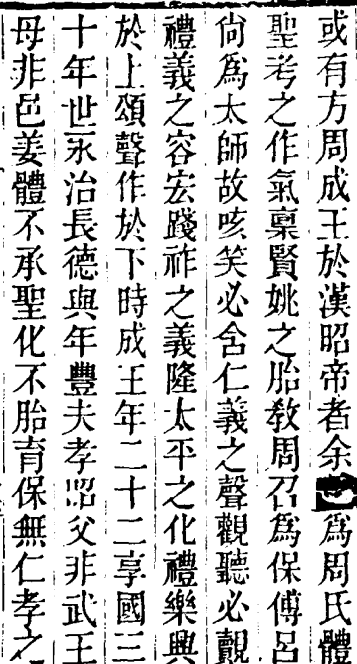 或有方周成王於漢昭帝者余為周氏體
聖考之作氣稟賢姚之胎教周召為保傅呂
尙為太師故咳笑必含仁義之聲觀聽必覩
禮義之容宏踐祚之義隆太平之化禮樂興
於上頌聲作於下時成王年二十二享國三
十年世永治長德與年豐夫孝昭父非武王
母非邑姜體不承聖化不胎育保無仁孝之